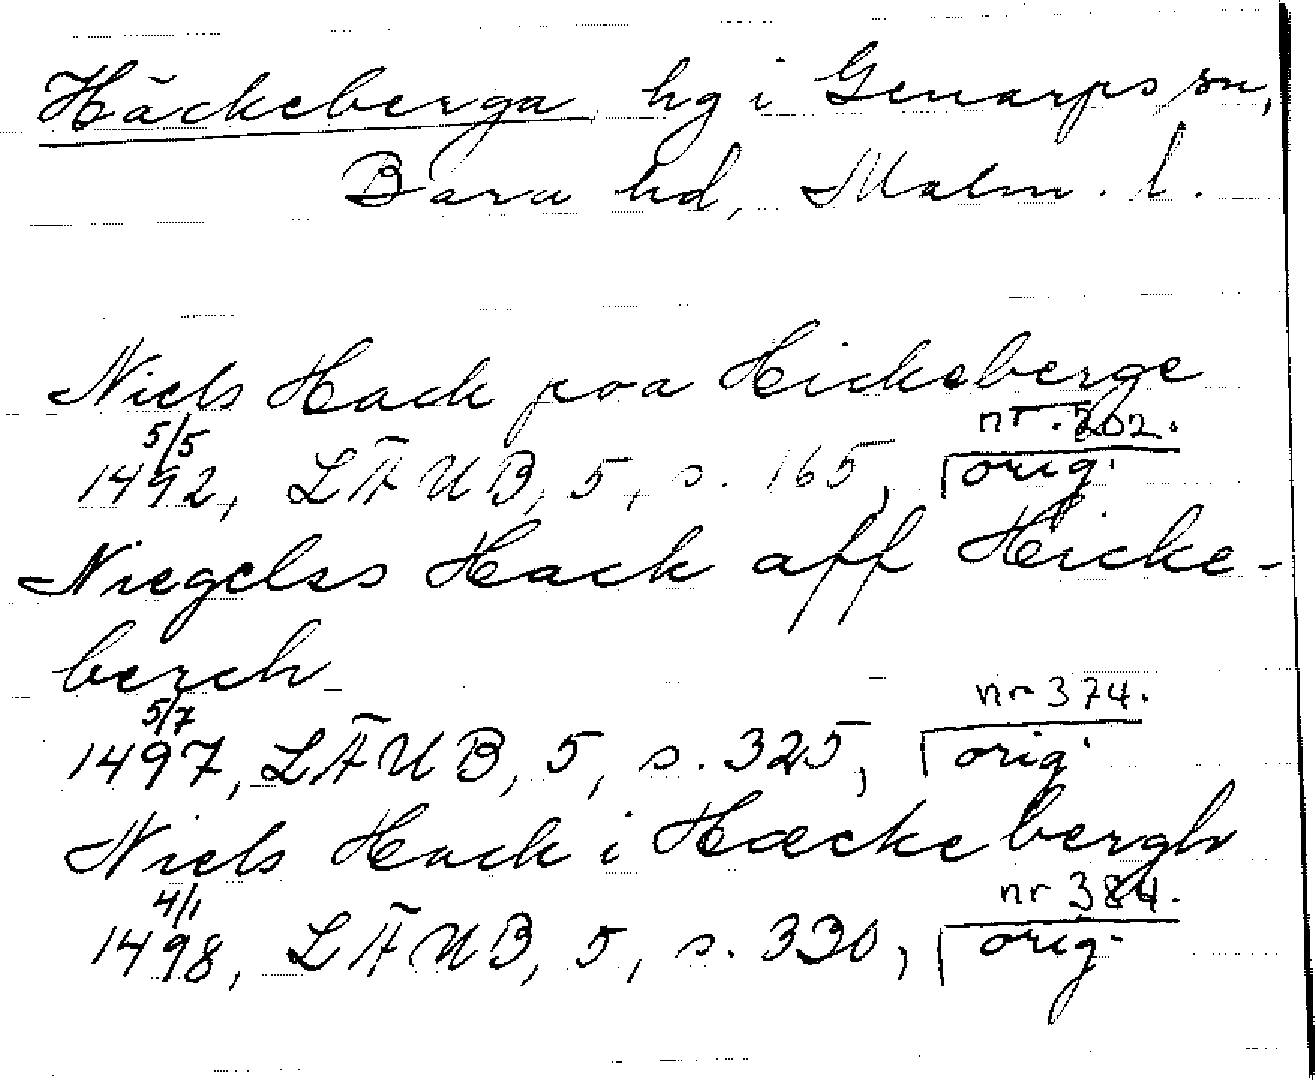 Häckeberga hg i Genarps sn,
Bara hd, Malm. l.
Niels Hack poa Hickeberge
nr. 202.
5/5
1492, LÄUB, 5, s. 165, orig.
Niegelss Hack aff Hicke-
berch
5/7
nr 374.
1497, LÄUB, 5, s. 325, orig.
Niels Hack i Hæckebergh
4/1
nr 384.
1498, LÄUB, 5, s. 330, orig.